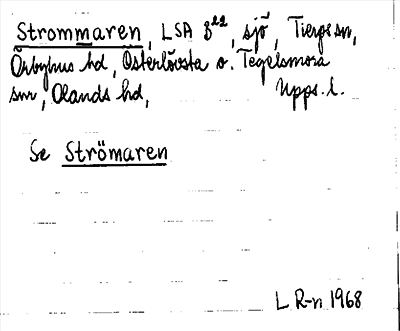 Strommaren, LSA 8²², sjö, Tierps sn,
Örbyhus hd, Österlövsta o. Tegelsmora
snr, Olands hd, Upps. l.
Se Strömaren
L R-n 1968